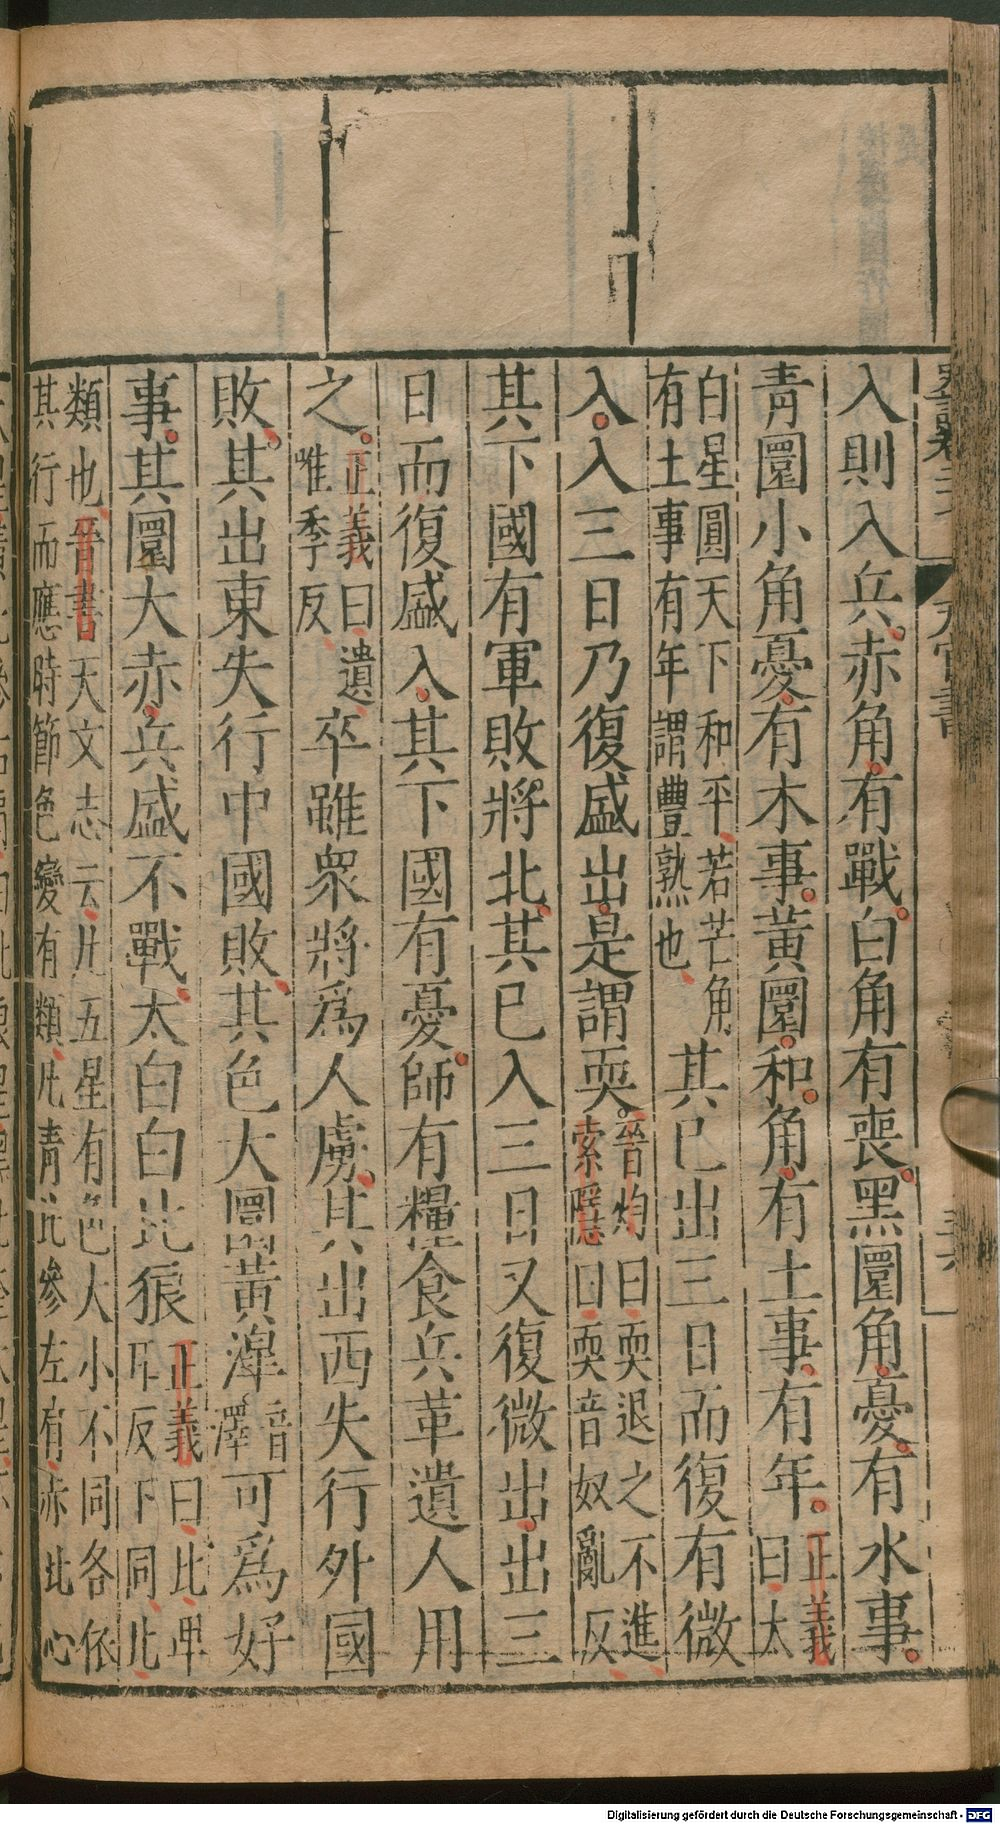 入則入兵赤角有戰白角有喪黑圜角憂有水事
青圜小角憂有木事黃圜和角有土事有年正義曰太
白星圓天下和平若芒角
有土事有年謂豐熟也其已出三日而復有微
入入三日乃復盛出是謂耎晉灼曰耎退之不進
索隱曰耎音奴亂反
其下國有軍敗將北其已入三日又復微出出三
日而復盛入其下國有憂師有糧食兵革遺人用
之正義曰遺
唯季反卒雖衆將爲人虜其出西失行外國
敗其出東失行中國敗其色大圜黃滜音
澤可爲好
事其圜大赤兵盛不戰太白白比狼正義曰比卑
耳反下同比
類也晉書天文志云凡五星有色大小不同各依
其行而應時節色變有類凡靑比參左肩赤比心
Digitalisierung gefördert durch die Deutsche Forschungsgemeinschaft - DFG